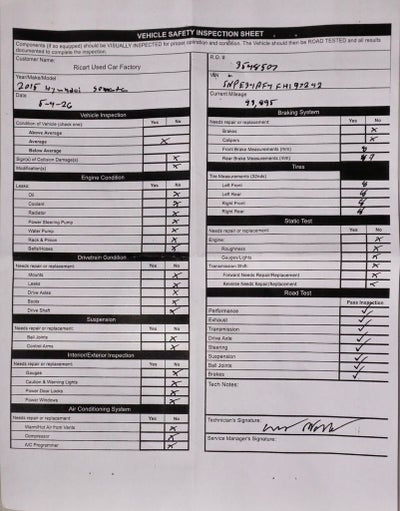 VEHICLE SAFETY INSPECTION SHEET
Components (if so equipped) should be VISUALLY INSPECTED for proper operation and condition. The Vehicle should then be ROAD TESTED and all results
documented to complete the inspection.
Customer Name:
Ricart Used Car Factory
Year/Make/Model
2015 Hyundai Sonata
Date
5-4-26
Vehicle Inspection
Condition of Vehicle (check one) Yes No
Above Average
Average X
Below Average
Sign(s) of Collision Damage(s) X
Modification(s) X
Engine Condition
Leaks Yes No
Oil X
Coolant X
Radiator X
Power Steering Pump X
Water Pump X
Rack & Pinion X
Belts/Hoses X
Drivetrain Condition
Needs repair or replacement Yes No
Mounts X
Leaks X
Drive Axles X
Boots X
Drive Shaft X
Suspension
Needs repair or replacement Yes No
Ball Joints X
Control Arms X
Interior/Exterior Inspection
Needs repair or replacement Yes No
Gauges X
Caution & Warning Lights X
Power Door Locks X
Power Windows X
Air Conditioning System
Needs repair or replacement Yes No
Warm/Hot Air from Vents X
Compressor X
A/C Programmer X
R.O. #
VIN
Current Mileage
93,895
Braking System
Needs repair or replacement: Yes No
Brakes X
Calipers X
Front Brake Measurements (mm)
Rear Brake Measurements (mm)
Tires
Tire Measurements (32nds):
Left Front
Left Rear
Right Front
Right Rear
Static Test
Needs repair or replacement: Yes No
Engine: X
Roughness X
Gauges/Lights X
Transmission Shift: X
Forward Needs Repair/Replacement X
Reverse Needs Repair/Replacement X
Road Test
Pass Inspection
Performance ✓
Exhaust ✓
Transmission ✓
Drive Axle ✓
Steering ✓
Suspension ✓
Ball Joints ✓
Brakes ✓
Tech Notes:
Technician's Signature:
Service Manager's Signature: